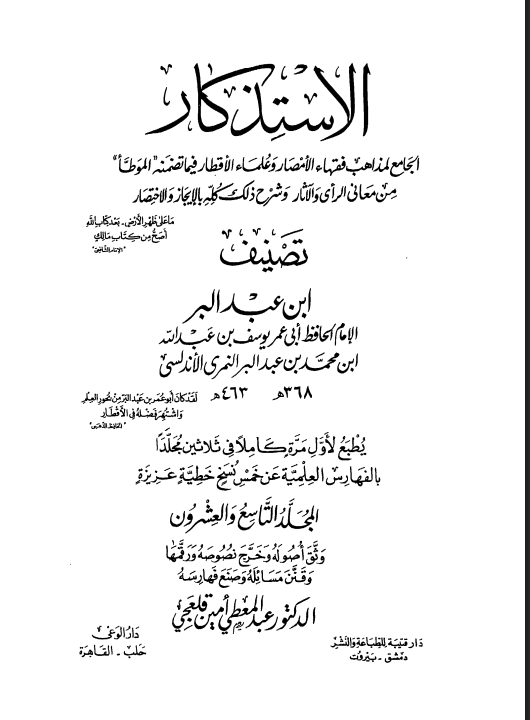 الاستذكار
الجامع لمذاهب فقهاء الأمصار وعلماء الأقطار فيما تضمنه "الموطأ"
من معاني الرأي والآثار وشرح ذلك كله بالإيجاز والاختصار
ما على ظهر الأرض - بعد كتاب الله
أصح من كتاب مالك
"الإمام الشافعي"
تصنيف
ابن عبد البر
الإمام الحافظ أبي عمر يوسف بن عبد الله
ابن محمد بن عبد البر النمري الأندلسي
٣٦٨هـ ٤٦٣هـ
لقد كان أبو عمر بن عبد البر من بحور العلم
واشتهر فضله في الأقطار
"الحافظ الذهبي"
يُطبع لأوّل مَرّة كاملًا في ثلاثين مُجلّدًا
بالفهارس العِلميّة عَن خَمْسِ نُسَخٍ خَطيّةٍ عَزيزةٍ
المجلّد التّاسع والعشرون
وَثّق أُصُولَهُ وَخَرّج نُصُوصَهُ وَرَقّمها
وَقَنّن مَسَائِلَهُ وَصَنَعَ فَهَارِسَهُ
الدكتور عبد المعطي أمين قلعجي
دار قتيبة للطباعة والنشر
دمشق - بيروت
دار الوعي
حلب - القاهرة